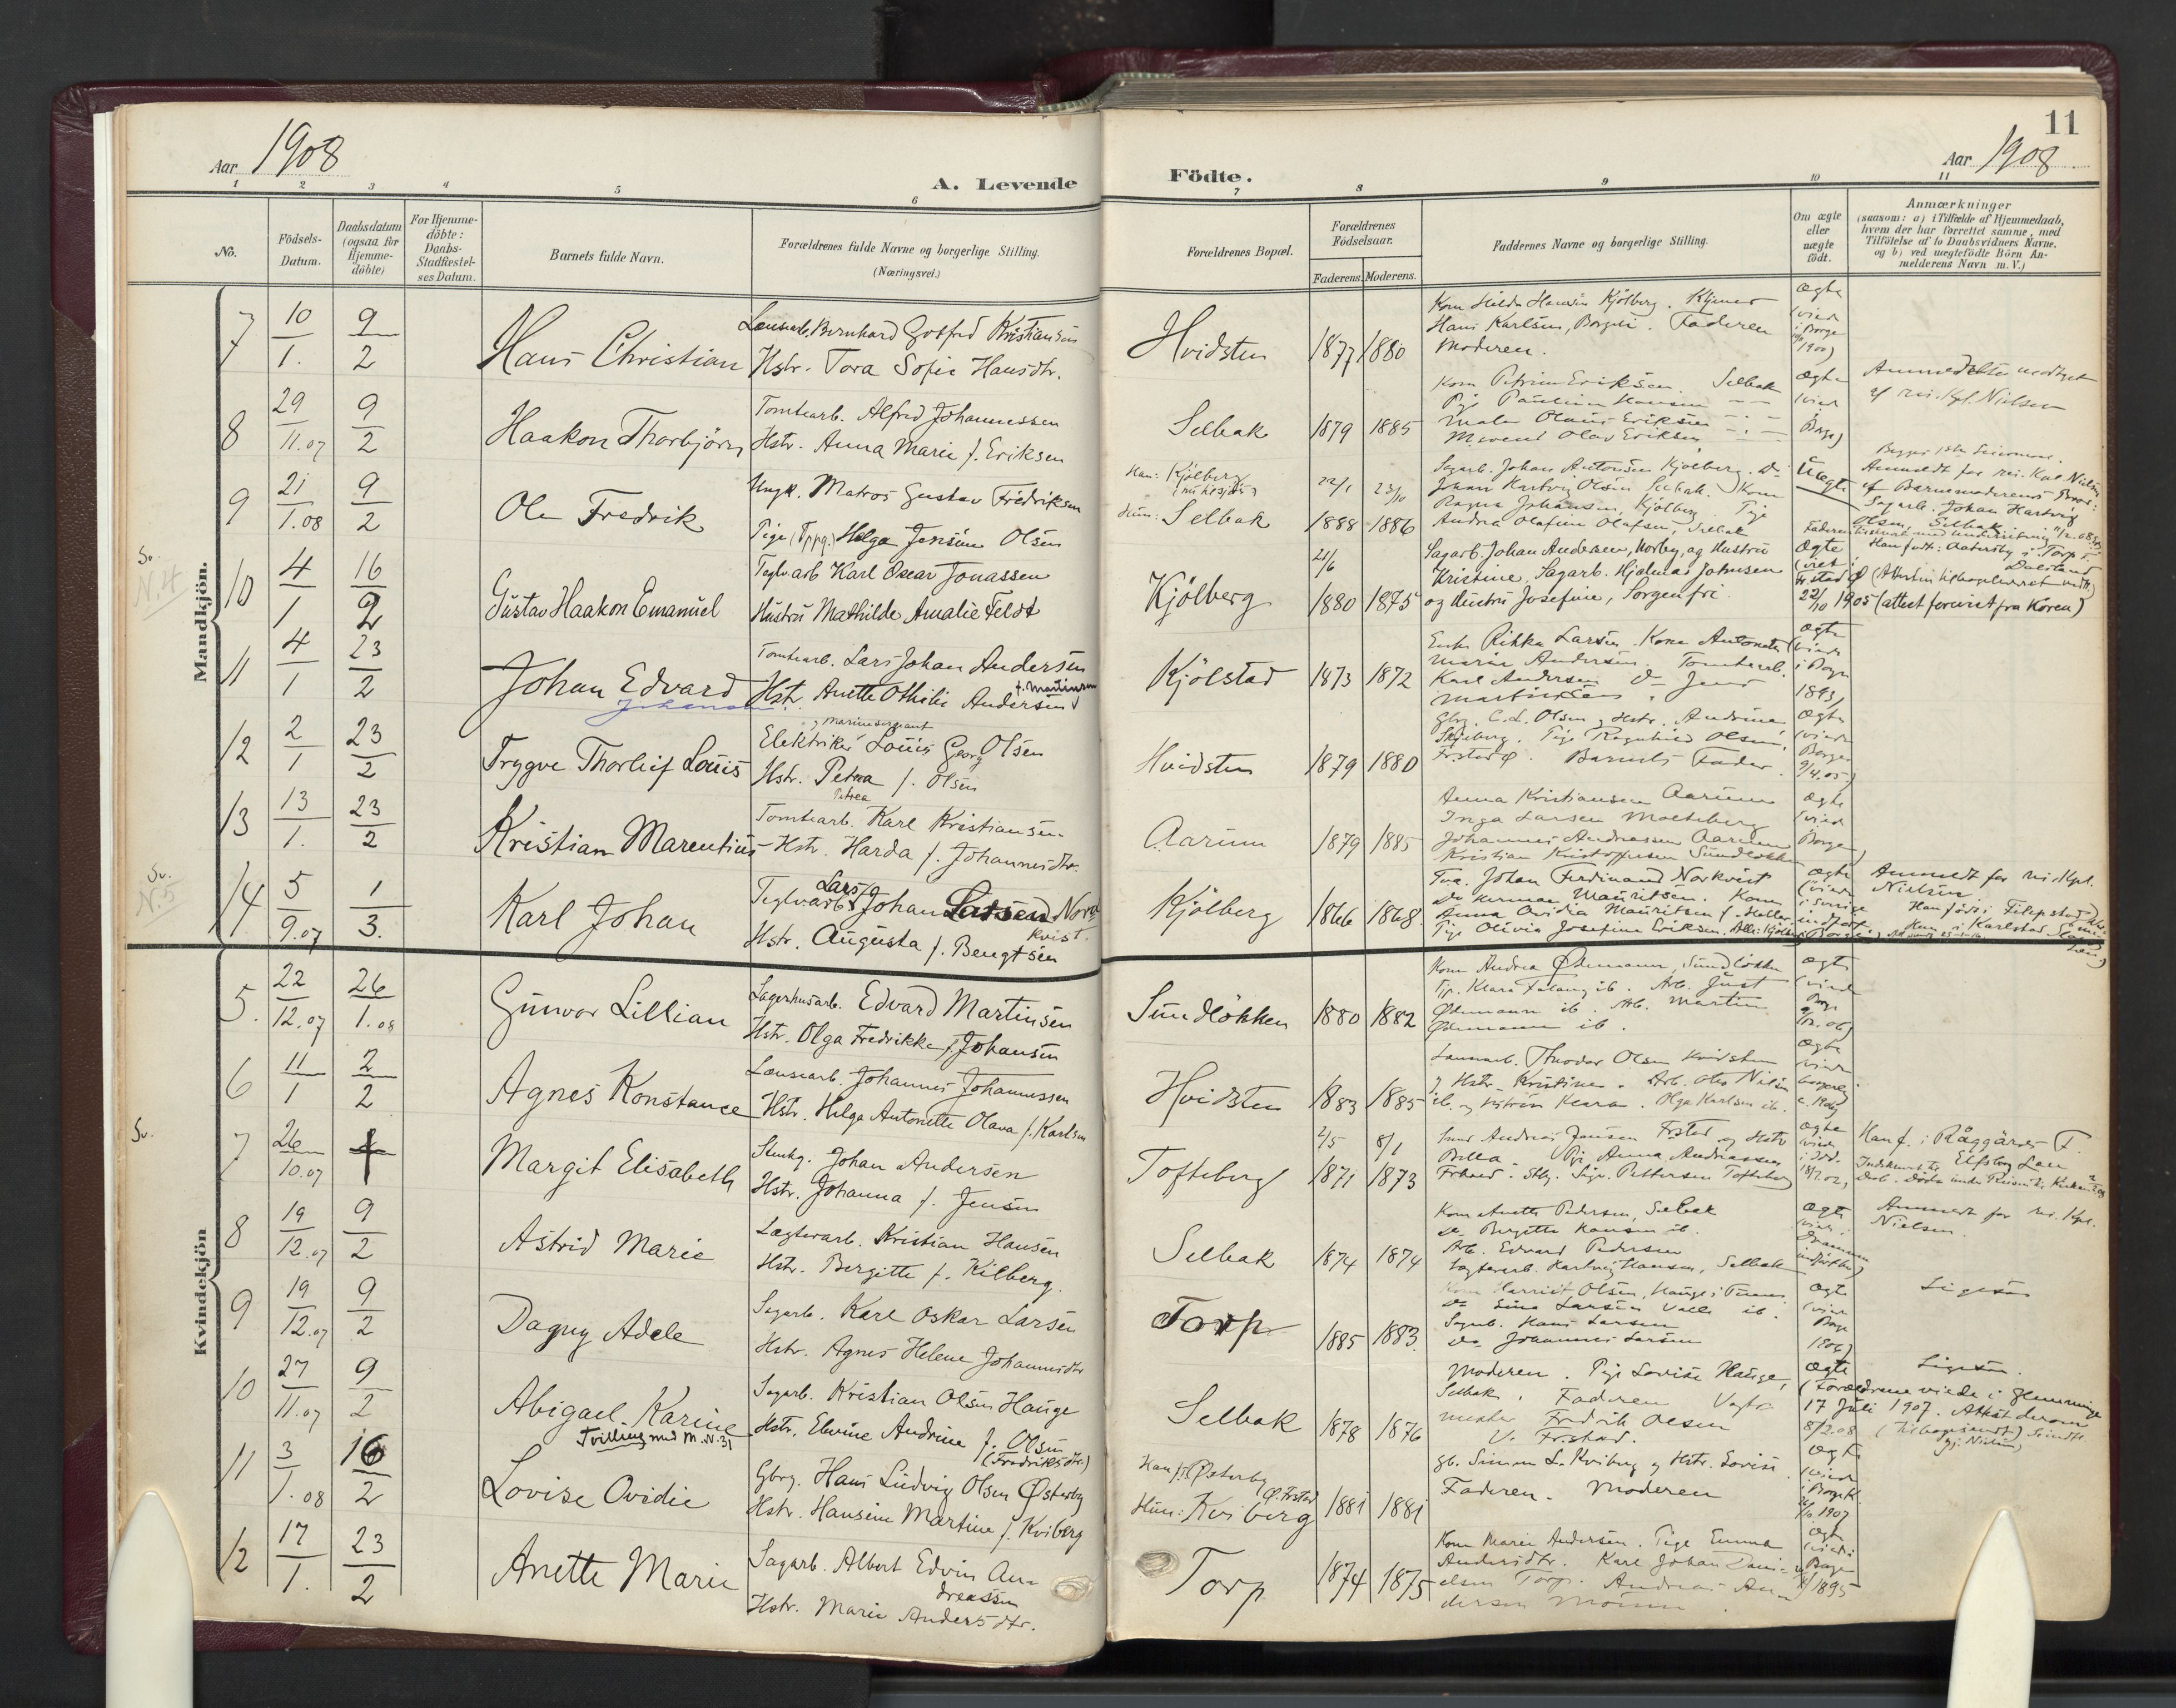 11
Aar 1908
A. Levende Födte.
Aar 1908
1 2 3 4 5 6 7 8 9 10 11
No.
Födsels-Datum.
Daabsdatum (ogsaa for Hjemme-döbte)
For Hjemme-döbte: Daabs-Stadfæstel-ses Datum.
Barnets fulde Navn.
Forældrenes fulde Navne og borgerlige Stilling. (Næringsvei.)
Forældrenes Bopæl.
Forældrenes Födselsaar.
Faderens. Moderens.
Faddernes Navne og borgerlige Stilling.
Om ægte eller uægte födt.
Anmærkninger
(saasom: a) i Tilfælde af Hjemmedaab,
hvem der har forrettet samme, med
Tilföielse af to Daabsvidners Navne,
og b) ved uægtefödte Börn An-
melderens Navn m. V.)
Mandkjön.
7 10/1. 9/2 Hans Christian
Lænsearb. Bernhard Gotfred Kristiansen
Hstr. Tora Sofie Hansdtr.
Hvidsten 1877 1880
Hans Karlsen, Borge. Faderen
Moderen.
Ægte (viede i Borge 1900)
8 29/11.07 9/2 Haakon Thorbjörn
Tomtearb. Alfred Johannessen
Hstr. Anna Marie f. Eriksen
Selbak 1879 1885
Kone Petrine Eriksen. Selbak
Pige Pauline Hansen
Maler Olaus Eriksen
Olav Eriksen
Ægte (viede Borge)
af res. Kpl. Nielsen
9 21/1.08 9/2 Ole Fredrik
Ungk. Matros Gustav Fredriksen
Pige (Oppg.) Helga Jensine Olsen
Han: Kjölberg
Hun: Selbak
22/1 1888 23/10 1886
Sagarb. Johan Antonsen Kjölberg. Do
Johan Hartvig Olsen Selbak. Kone
Ragna Johansen, Kjölberg. Pige
Andrea Olafine Olafsen, Selbak
Uægte
Begges 1ste
Anmeldt for res. Kap. Nielsen
af Barnemoderens Broder:
Sagarb. Johan Hartvig
Olsen, Selbak
Sv.
N.4
10 4/1 16/2 Gustav Haakon Emanuel
Teglv.arb Karl Oscar Jonassen
Hustru Mathilde Amalie Feldt
Kjölberg 21/6 1880 1875
Sagarb. Johan Andersen, Norby, og Hustru
Kristine, Sagarb. Hjalmar Johnsen
og Hustru Josefine, Sorgenfri
Ægte (viet Fr.stad 22/10 1905 (attest foreviset fra Koren)
11 4/1 23/2 Johan Edvard
Johansen
Tomtearb. Lars Johan Andersen
Hstr. Anette Othilie Andersen f. Martinsen
Kjölstad 1873 1872
Enke Rikka Larsen. Kone Antonette
Marie Andersen. Tomtearb.
Karl Andersen Do Jens
Martinsen
Ægte (viede i Borge 1893)
12 2/1 23/2 Trygve Thorleif Louis
Elektriker, Marinesergeant Louis Georg Olsen
Hstr. Petra f. Olsen
Petrea
Hvidsten 1879 1880
Gbrg. C. L. Olsen og Hstr. Andrine
Skjeberg. Pige Ragnhild Olsen,
Fr.stad. Barnets Fader.
Ægte (viede Borge 9/4.05)
13 13/1. 23/2 Kristian Marentius
Tomtearb. Karl Kristiansen
Hstr. Harda f. Johannesdtr.
Aarum 1879 1885
Anna Kristiansen Aarum
Inga Larsen Molteberg
Johannes Andreassen Aarum
Kristian Kristoffersen Sundlökka
Ægte (viede Borge)
Sv.
N.5
14 5/9.07 1/3. Karl Johan
Teglv.arb. Lars Johan Larsen Norqvist
Hstr. Augusta f. Bengtsen
Kjölberg 1866 1868.
Johan Ferdinand Norkvist
Do Herman Mauritsen. Kone
Anna Ovidia Mauritsen f. Heller
Pige Olivia Josefine Eriksen. Alle: Kjölberg
Ægte (viede i Sverige
Anmeldt for res. Kpl.
Nielsen
Han född i Filipstad
Hun i Karlstad
Kvindekjön
5. 22/12.07 26/1.08 Gunvor Lillian
Lagerhusarb. Edvard Martinsen
Hstr. Olga Fredrikke f. Johansen
Sundlökken 1880 1882
Kone Andrea Ødemann, Sundlökka
Pige. Klara ib. Arb. Just
Ødemann ib. Arb. Martin
Ødemann ib.
Ægte (viede Borge
6 11/1 2/2 Agnes Konstance
Lænsearb. Johannes Johannessen
Hstr. Helga Antonette Olava f. Karlsen
Hvidsten 1883 1885
Lænsearb. Theodor Olsen Hvidsten
og Hstr. Kristine. Arb. Otto Nilsen
ib. og Hstr. Klara. Olga Karlsen ib.
Ægte
Sv.
7 26/10.07 † Margit Elisabeth
Stenhg. Johan Andersen
Hstr. Johanna f. Jensen
Tofteberg 2/5 1871 8/1 1873
Smed Andreas Jansen Fr.stad og Hstr
Pige Anna Andreassen
Fr.stad. Sthg. Sigv. Pettersen Tofteberg
Ægte
Han f. i Råggärd
Elfsborg Län
8 19/12.07 9/2 Astrid Marie
Lægterarb. Kristian Hansen
Hstr. Bergitte f. Kilberg.
Selbak 1874 1874
Kone Anette Pedersen, Selbak
Do Bergitte Hansen ib.
Arb. Edvard Pedersen
Lægterarb. Hartvig Hansen, Selbak
Ægte
Anmeldt for res. Kpl.
Nielsen.
9 19/12.07 9/2 Dagny Adele
Sagarb. Karl Oskar Larsen
Hstr. Agnes Helene Johannesdtr
Torp 1885 1883.
Kone Harriet Olsen, Hauge i Tune
Do Sina Larsen Valle ib.
Sagarb. Hans Larsen
Do Johannes Larsen
Ægte (viede Borge 1906)
Ligesaa
10 27/11.07 9/2 Abigael Karine
Tvilling med M. N. 31
Sagarb. Kristian Olsen Hauge
Hstr. Elevine Andrine f. Olsen
(Fredriksdtr.)
Selbak 1878 1876
Moderen. Pige Lovise Hauge,
Selbak. Faderen Vagt-
mester Fredrik Olsen
V. Fr.stad.
Ægte
Ligesaa.
(Forældrene viede i Glemminge
17 Juli 1907. Attest derom
8/2.08 (tilbagesendt)
11 3/1.08 16/2 Lovise Ovidie
Gbrg. Hans Ludvig Olsen Østerby
Hstr. Hansine Martine f. Kviberg
Han f: Østerby Ø. Frstad
Hun: Kviberg
1881 1881
gb. Simon L. Kviberg og Hstr. Lovise.
Faderen. Moderen
Ægte (viede i Borge 1907
12 17/1. 23/2 Anette Marie
Sagarb. Albert Edvin An-
dreassen
Hstr. Marie Andersdtr.
Torp 1874 1875
Kone Marie Andersen. Pige Emma
Andersdtr. Karl Johan Dani-
elsen Torp. Andreas An-
dersen Moum.
Ægte (viede i Borge 1895